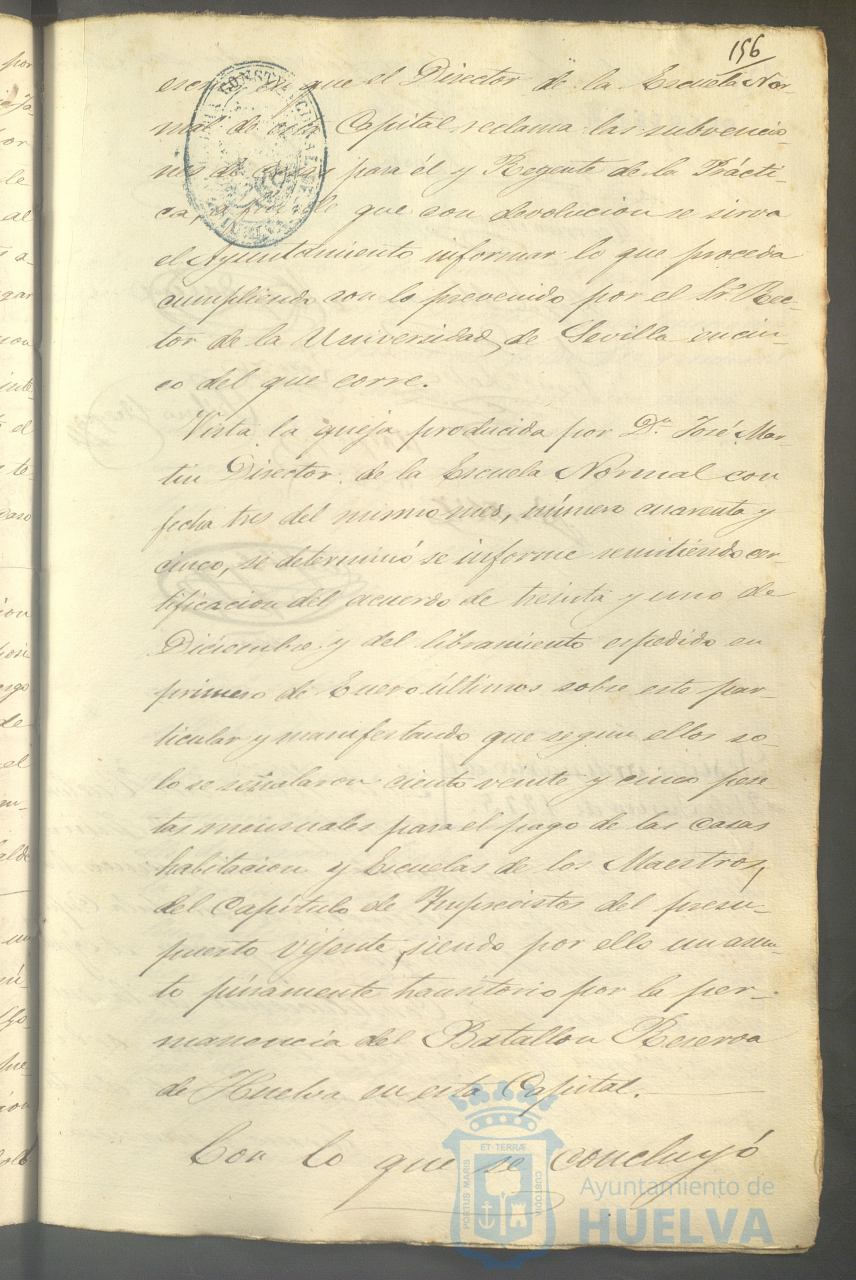 156
que el Director de la Escuela Nor-
mal de esta Capital reclama las subvencio-
nes de casas para él y Regente de la Prácti-
ca, que con devolucion se sirva
el Ayuntamiento informar lo que proceda
cumpliendo con lo prevenido por el Sr. Rec-
tor de la Universidad de Sevilla en cin-
co del que corre.
Vista la queja producida por Dn. José Mar-
tin Director de la Escuela Normal con
fecha tres del mismo mes, número cuarenta y
cinco, se determinó se informe remitiendo cer-
tificacion del acuerdo de treinta y uno de
Diciembre y del libramiento espedido en
primero de Enero últimos sobre este par-
ticular y manifestando que segun ellos so-
lo se señalaron ciento veinte y cinco pese-
tas mensuales para el pago de las casas
habitacion y Escuelas de los Maestros,
del Capítulo de Imprevistos del presu-
puesto vijente, siendo por ello un asun-
to púramente transitorio por la per-
manencia del Batallon Reserva
de Huelva en esta Capital.
Con lo que se concluyó
PORTUS MARIS ET TERRÆ CUSTODIA
Ayuntamiento de
HUELVA